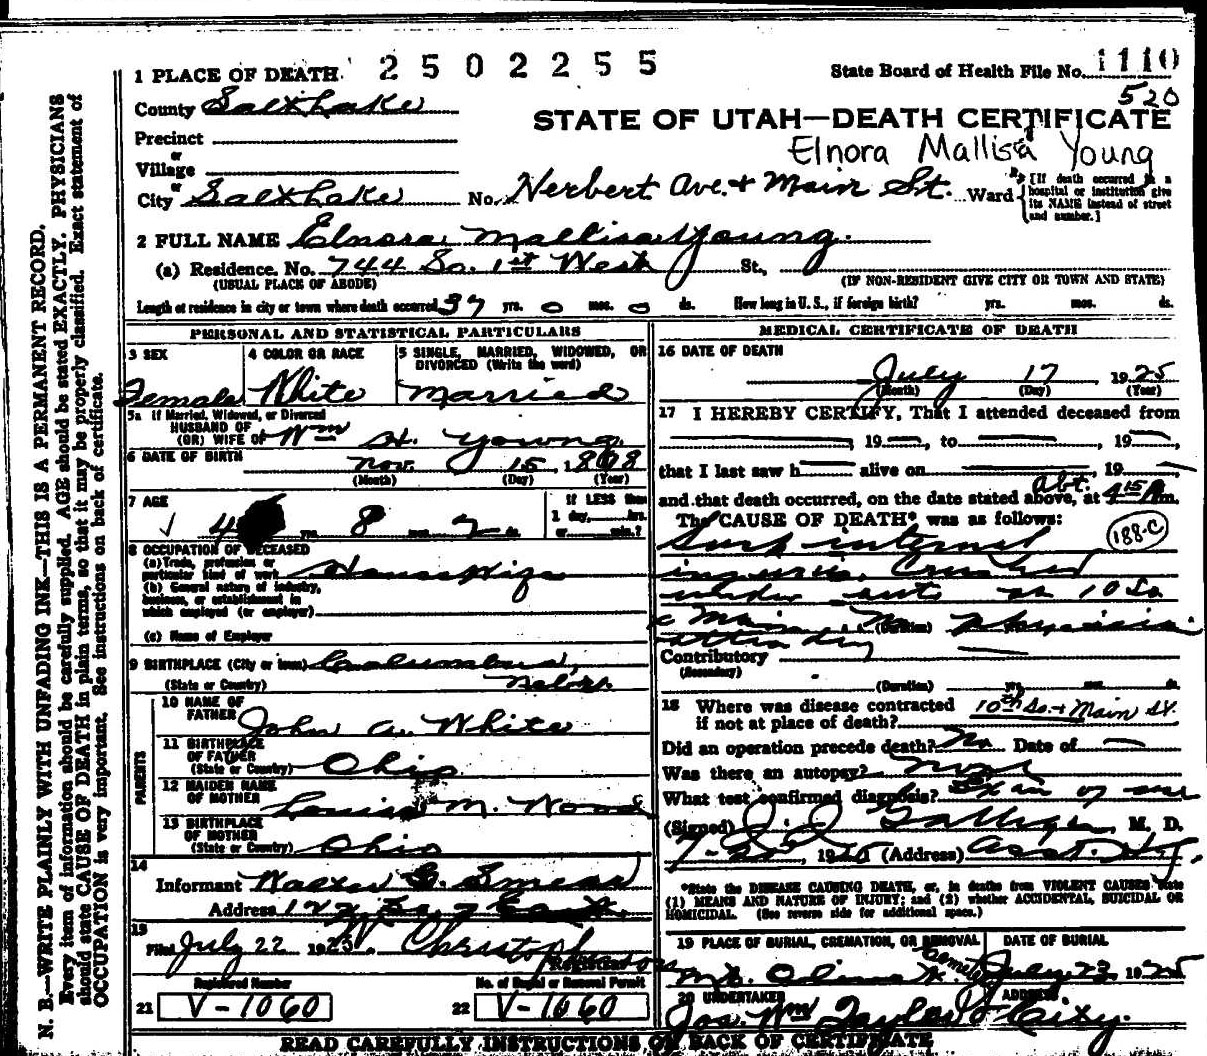 1 PLACE OF DEATH. 2502255
State Board of Health File No. 1110
520
County Salt Lake
STATE OF UTAH—DEATH CERTIFICATE
Precinct
Elnora Mallisa Young
or
Village
or
City Salt Lake No. Herbert Ave. + Main St. Ward
[If death occurred in a hospital or institution give its NAME instead of street and number.]
2 FULL NAME Elnora Mallisa Young.
(a) Residence. No. 744 So. 1st West St.,
(USUAL PLACE OF ABODE) (IF NON-RESIDENT GIVE CITY OR TOWN AND STATE)
Length of residence in city or town where death occurred 37 yrs. 0 mos. 0 ds. How long in U. S., if foreign birth? yrs. mos. ds.
PERSONAL AND STATISTICAL PARTICULARS
3 SEX
Female
4 COLOR OR RACE
White
5 SINGLE, MARRIED, WIDOWED, OR DIVORCED (Write the word)
Married
5a If Married, Widowed, or Divorced
HUSBAND OF
(OR) WIFE OF Wm H. Young.
6 DATE OF BIRTH Nov. 15, 18
(Month) (Day) (Year)
7 AGE
4 yrs. 8 mos. 2 ds.
If LESS than
1 day, hrs.
or min.?
8 OCCUPATION OF DECEASED
(a) Trade, profession or
particular kind of work HouseWife
(b) General nature of industry,
business, or establishment in
which employed (or employer)
(c) Name of Employer
9 BIRTHPLACE (City or town) Columbus,
(State or Country) Nebr.
PARENTS
10 NAME OF FATHER John A. White
11 BIRTHPLACE OF FATHER (State or Country) Ohio.
12 MAIDEN NAME OF MOTHER Louisa M. Wood
13 BIRTHPLACE OF MOTHER (State or Country) Ohio
14
Informant Walter G.
Address
15
Filed July 22 1925 Christopherson
Registrar
Registered Number No. of Burial or Removal Permit
21 V-1060 22 V-1060
MEDICAL CERTIFICATE OF DEATH
16 DATE OF DEATH
July 17 1925
(Month) (Day) (Year)
17 I HEREBY CERTIFY, That I attended deceased from
, 19 , to , 19 ,
that I last saw h alive on , 19
abt.
and that death occurred, on the date stated above, at 4 15 m.
The CAUSE OF DEATH* was as follows:
188-C
internal
injuries. Crushed
under auto on 10 So
+ Main. No Physician
(Duration)
attending
Contributory
(Secondary)
(Duration) yrs. mos. ds.
18 Where was disease contracted
if not at place of death? 10th So. + Main St.
Did an operation precede death? No Date of
Was there an autopsy? None
What test confirmed diagnosis? Exam of
(Signed) M. D.
7-20, 1925 (Address) Asst.
*State the DISEASE CAUSING DEATH, or, in deaths from VIOLENT CAUSES state
(1) MEANS AND NATURE OF INJURY; and (2) whether ACCIDENTAL, SUICIDAL OR
HOMICIDAL. (See reverse side for additional space.)
19 PLACE OF BURIAL, CREMATION, OR REMOVAL
Mt. Olivet Cemetery
DATE OF BURIAL
July 23 1925
20 UNDERTAKER
Jos. Wm Taylor
ADDRESS
City.
READ CAREFULLY INSTRUCTIONS ON BACK OF CERTIFICATE
N. B.—WRITE PLAINLY WITH UNFADING INK—THIS IS A PERMANENT RECORD.
Every item of information should be carefully supplied. AGE should be stated EXACTLY. PHYSICIANS
should state CAUSE OF DEATH in plain terms, so that it may be properly classified. Exact statement of
OCCUPATION is very important. See instructions on back of certificate.